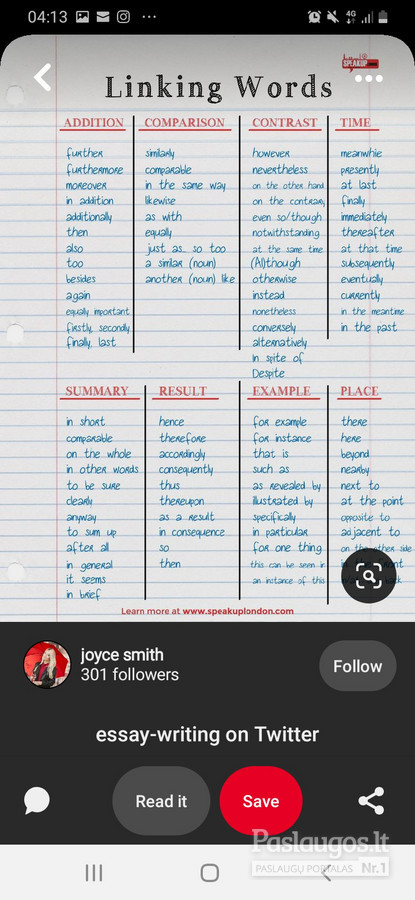 04:13
4G
SPEAKUP
Linking Words
ADDITION
further
furthermore
moreover
in addition
additionally
then
also
too
besides
again
equally important
firstly, secondly
finally, last
COMPARISON
similarly
comparable
in the same way
likewise
as with
equally
just as.. so too
a similar (noun)
another (noun) like
CONTRAST
however
nevertheless
on the other hand
on the contrary
even so/though
notwithstanding
at the same time
(Al)though
otherwise
instead
nonetheless
conversely
alternatively
In spite of
Despite
TIME
meanwhile
presently
at last
finally
immediately
thereafter
at that time
subsequently
eventually
currently
in the meantime
in the past
SUMMARY
in short
comparable
on the whole
in other words
to be sure
clearly
anyway
to sum up
after all
in general
it seems
in brief
RESULT
hence
therefore
accordingly
consequently
thus
thereupon
as a result
in consequence
so
then
EXAMPLE
for example
for instance
that is
such as
as revealed by
illustrated by
specifically
in particular
for one thing
this can be seen in
an instance of this
PLACE
there
here
beyond
nearby
next to
at the point
opposite to
adjacent to
on the other side
Learn more at www.speakuplondon.com
joyce smith
301 followers
Follow
essay-writing on Twitter
Read it
Save
Paslaugos.lt
PASLAUGŲ PORTALAS Nr.1